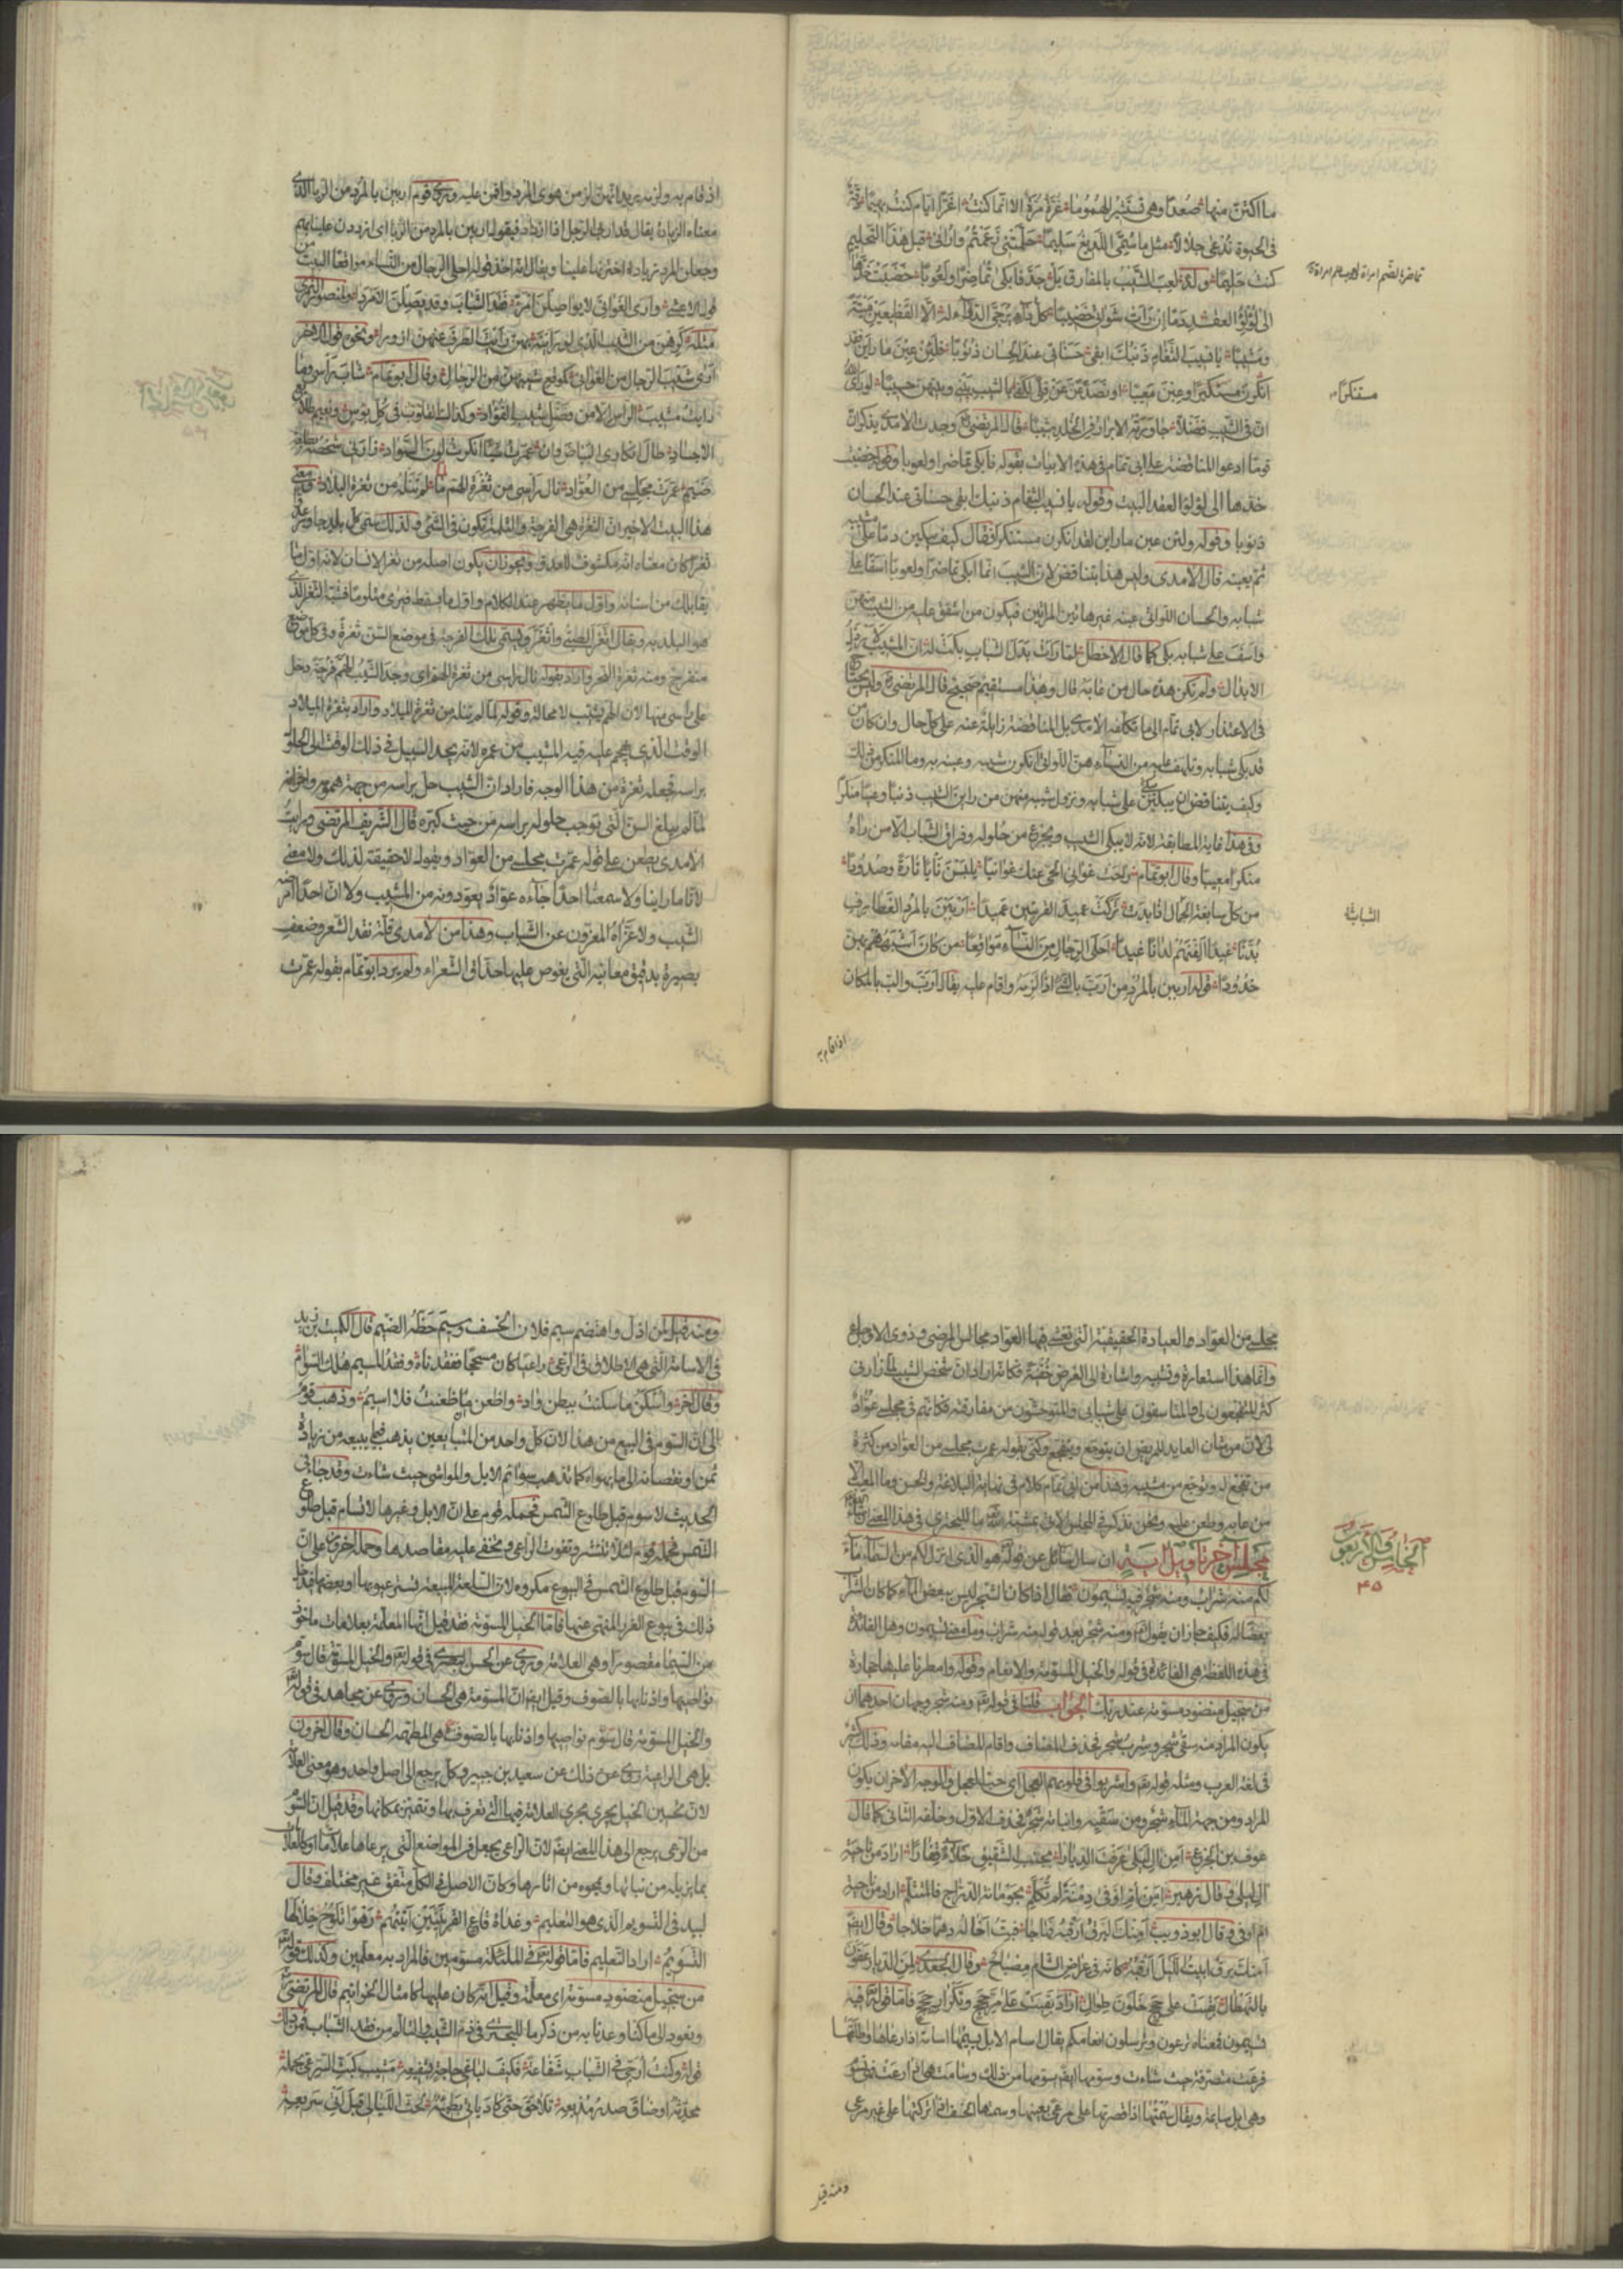 ما اكتن منها صعدا وهى تستثير الهموما غرة مرة الا انما كنت اغرّا ايام كنت بهيما دقة
فى الحيوة تدعى جلالا مثل ما سمى اللديغ سليما حلمتنى زعمتم وارانى قبل هذا التحليم
كنت حليما وله لعب الشيب بالمفارق بل جد فابكى تماضرا ولعوبا خضبت خدها
الى لؤلؤ العقد دما ان رات شواتى خضيبا كل داء يرجى الدواء له الا الفظيعين ميتة
ومشيبا يا نسيب الثغام ذنبك ابقى حسناتى عند الحسان ذنوبا ولئن عبن ما راين لقد
انكرن مستنكرا وعبن معيبا او تصدعن عن قلى لكفى بالشيب بينى وبينهن حسيبا لو راى الله
ان فى الشيب فضلا جاورته الابرار فى الخلد شيبا قال المرتضى وجدت الامدى يذكر ان
قوما ادعوا المناقضة على ابى تمام فى هذه الابيات بقوله فابكى تماضرا ولعوبا وقوله خضبت
خدها الى لؤلؤ العقد البيت وقوله يا نسيب الثغام ذنبك ابقى حسناتى عند الحسان
ذنوبا وقوله ولئن عبن ما راين لقد انكرن مستنكرا فقال كيف يبكين دما على شيبه
ثم يعبنه قال الامدى وليس هذا بتناقض لان الشيب انما ابكى تماضرا ولعوبا اسفا على
شبابه والحسان اللواتى عبنه غير هاتين المراتين فيكون من اشفق عليه من الشيب منهن
واسف على شبابه بكى كما قال الاخطل لما رات بدل الشباب بكت له ان المشيب لارذل
الابدال ولم تكن هذه حال من عابه قال وهذا مستقيم صحيح قال المرتضى وليس يحتاج
فى الاعتذار لابى تمام الى ما تكلفه الامدى بل المناقضة زايلة عنه على كل حال وان كان من
قد بكى شبابه وتلهف عليه من النساء هن اللواتى انكرن شيبه وعبنه به وما المنكر من ذلك
وكيف يتناقض ان يبكين على شبابه ونزول شيبه منهن من راين الشيب ذنبا وعيبا منكرا
وفى هذا غاية المطابقة لانه لا يبكى الشيب ويجزع من حلوله وفراق الشباب الا من راه
منكرا معيبا وقال ابو تمام راحت غوانى الحى عنك غوانيا يلبسن نايا تارة وصدودا
من كل سابغة الشباب اذا بدت تركت عميد القريتين عميدا اربين بالمرد الغطارف
بدنا غيدا الفنهم لدانا غيدا احلى الرجال من النساء مواقعا من كان اشبههم بهن
خدودا قوله اربين بالمرد من ارب بالشئ اذا لزمه واقام عليه يقال ارب والب بالمكان
مستنكرا
الشباب
اذا قام به
اذا قام به ولزمه يريد انهن لزمن هوى المرد واقمن عليه وروى قوم اربين بالمرد من الربا الذى
معناه الزيادة يقال قد اربى الرجل اذا ازداد فيقول اربين بالمرد من الربا اى ازددن علينا بهم
وجعلن المرد زيادة اخترنها علينا ويقال انه اخذ قوله احلى الرجال من النساء مواقعا البيت من
قول الاعشى وارى الغوانى لا يواصلن امرءا فقد الشباب وقد يصلن الامردا ولمنصور النمرى
مثله كرهن من الشيب الذى لو راينه بهن رايت الطرف عنهن ازورا ونحوه قول الاخر
ارى شيب الرجال من الغوانى كموقع شيبهن من الرجال وقال ابو تمام شاب راسى وما
رايت مشيب الراس الا من فضل شيب الفؤاد وكذاك القلوب فى كل بؤس ونعيم طلائع
الاجساد طال انكارى البياض وان عمرت شيئا انكرت لون السواد زارنى شخصه بطلعة
ضيم عمرت مجلسى من العواد نال راسى من ثغرة الهم ما لم تنله من ثغرة الميلاد ومعنى
هذا البيت الاخير ان الثغرة هى الفرجة والثلمة تكون فى الشئ ولذلك سمى كل بلد جاور عدوا
ثغرا كان معناه انه مكشوف للعدو ويجوز ان يكون اصله من ثغر الانسان لانه اول ما
يقابلك من اسنانه واول ما يظهر عند الكلام واول ما يسقط فيرى مثلوما فشبه الثغر الذى
هو البلد به ويقال اثغر الصبى واتغر ويسمى تلك الفرجة فى موضع السن ثغرة وفى كل موضع
منفرج ومنه ثغرة النحر واراد بقوله نال راسى من ثغرة الهم اى وجد الشيب الهم فرجة دخل
على راسى منها لان الهم يشيب لا محالة وقوله ما لم تنله من ثغرة الميلاد واراد بثغرة الميلاد
الوقت الذى يهجم عليه فيه المشيب من عمره لانه يجد السبيل فى ذلك الوقت الى الحلول
براسه فجعله ثغرة من هذا الوجه فاراد ان الشيب حل براسه من جهة همومه واحزانه
لما لم يبلغ السن التى توجب حلوله براسه من حيث كبره قال الشريف المرتضى ورايت
الامدى يطعن على قوله عمرت مجلسى من العواد ويقول لا حقيقة لذلك ولا معنى
لانا ما راينا ولا سمعنا احدا جاءه عواد يعودونه من المشيب ولا ان احدا امرضه
الشيب ولا عزاه المعزون عن الشباب وهذا من الامدى قلة نقد الشعر وضعف
بصيرة بدقيق معانيه التى يغوص عليها حذاق الشعراء ولم يرد ابو تمام بقوله عمرت
مجلسى من العواد العيادة الحقيقية التى تغشى فيها العواد مجالس المرضى وذوى الاوجاع
وانما هذا استعارة وتشبيه واشارة الى الغرض خفية فكانه اراد ان شخص الشيب لما زارنى
كثر المتفجعون لى والمتاسفون على شبابى والمتوحشون من مفارقته فكانهم فى مجلسى عواد
لى لان من شان العايد للمريض ان يتوجع ويتفجع وكنى بقوله عمرت مجلسى من العواد من كثرة
من تفجع له وتوجع من مشيبه وهذا من ابى تمام كلام فى نهاية البلاغة والحسن وما المعيب الا
من عابه وطعن عليه ونحن نذكر فى المجلس الاتى بمشية الله ما للبحترى فى هذا المعنى ان شاء الله
مجلس اخر تاويل اية ان سال سائل عن قوله هو الذى انزل لكم من السماء ماء
لكم منه شراب ومنه شجر فيه تسيمون فقال اذا كان الشجر ليس ببعض الماء كما كان الشراب
بعضا له فكيف جاز ان يقول ومنه شجر بعد قوله منه شراب وما معنى تسيمون وهل الفائدة
فى هذه اللفظة هى الفائدة فى قوله والخيل المسومة والانعام وقوله وامطرنا عليها حجارة
من سجيل منضود مسومة عند ربك الجواب قلنا فى قوله تعالى ومنه شجر وجهان احدهما ان
يكون المراد منه سقى شجر وشرب شجر فحذف المضاف واقام المضاف اليه مقامه وذلك كثير
فى لغة العرب ومثله قوله تعالى واشربوا فى قلوبهم العجل اى حب العجل والوجه الاخر ان يكون
المراد ومن جهة الماء شجر ومن سقيه وانباته شجر فحذف الاول وخلفه الثانى كما قال
عوف بن الخرع امن ال ليلى عرفت الديارا بجنب الشقيق خلاء قفارا اراد من ناحية
ال ليلى وقال زهير امن ام اوفى دمنة لم تكلم بحومانة الدراج فالمتثلم اراد من ناحية
ام اوفى وقال ابو ذويب امنك البرق ارقبه فهاجا فبت اخاله دهما خلاجا وقال ايضا
امنك برق ابيت الليل ارقبه كانه فى عراض الشام مصباح وقال الجعدى لمن الديار عفون
بالتهطال بقيت على حجج خلون طوال اراد بقيت على مر حجج وتكرار حجج فاما قوله تعالى فيه
تسيمون فمعناه ترعون وترسلون انعامكم يقال اسام الابل يسيمها اسامة اذا رعاها واطلقها
فرعت متصرفة حيث شاءت وسومها ايضا يسومها من ذلك وسامت هى اذا رعت فهى تسوم
وهى ابل سايمة ويقال سمتها اذا قصرتها على مرعى بعينها وسمتها الخسف اذا تركتها على غير مرعى
الخامس والاربعون
۴۵
ومنه قيل
ومنه قيل لمن اذل واهتضم سيم فلان الخسف وسيم خطة الضيم قال الكميت بن زيد
فى الاسامة التى هى الاطلاق فى الرعى راعيا كان مسجحا ففقدناه وفقد المسيم هلك السوام
وقال اخر واسكن ما سكنت ببطن واد واظعن ما ظعنت فلا اسيم وذهب قوم
الى ان السوم فى البيع من هذا لان كل واحد من المتبايعين يذهب فيما يبيعه من زيادة
ثمن او نقصانه الى ما يهواه كما تذهب سوائم الابل والمواشى حيث شاءت وقد جاء فى
الحديث لا سوم قبل طلوع الشمس فحمله قوم على ان الابل وغيرها لا تسام قبل طلوع
الشمس لئلا تنتشر وتفوت الراعى ويخفى عليه مقاصدها وحمله اخرون على ان
السوم قبل طلوع الشمس فى البيوع مكروه لان السلعة المبيعة تستتر عيوبها او بعضها فيدخل
ذلك فى بيوع الغرر المنهى عنها فاما الخيل المسومة فقد قيل انها المعلمة بعلامات ماخوذ
من السيما مقصورا وهى العلامة وروى عن الحسن البصرى فى قوله تعالى والخيل المسومة قال سوم
نواصيها واذنابها بالصوف وقيل ايضا ان المسومة هى الحسان وروى عن مجاهد فى قوله تعالى
والخيل المسومة قال سوم نواصيها واذنابها بالصوف هى المطهمة الحسان وقال اخرون
بل هى الراعية روى عن ذلك عن سعيد بن جبير وكل يرجع الى اصل واحد وهو معنى العلامة
لان تحسين الخيل يجرى مجرى العلامة فيها التى تعرف بها وتتميز بمكانها وقد قيل ان السوم
من الرعى يرجع الى هذا المعنى ايضا لان الراعى يجعل فى المواضع التى يرعاها علاما او كالعلامات
بما يزيله من نباتها ويمحوه من اثارها وكان الاصل فى الكل متفق غير مختلف وقال
لبيد فى التسويم الذى هو التعليم وغداة قاع القرنتين اتيتهم رهوا تلوح خلالها
التسويم اراد التعليم فاما قوله تعالى فى الملئكة مسومين فالمراد به معلمين وكذلك قوله تعالى
من سجيل منضود مسومة اى معلمة وقيل انه كان عليها كامثال الخواتيم قال المرتضى
ونعود الى ما كنا وعدنا به من ذكر ما للبحترى فى ذم الشيب والتالم من فقد الشباب فمن ذلك
قوله وكنت ارجى فى الشباب شفاعة فكيف لباغى حاجة بشفيعه مشيب كبث السر عى بحمله
محدثه او ضاق صدر مذيعه تلاحق حتى كاد ياتى بطيئه بحث الليالى قبل اتى سريعه